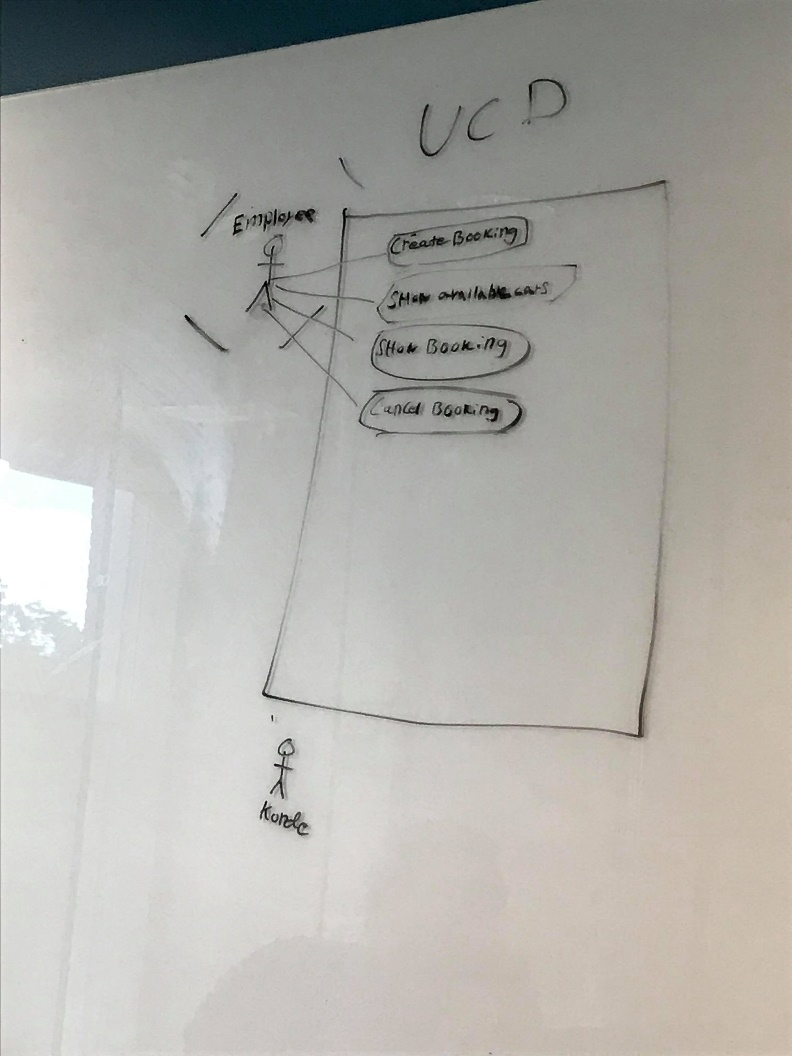 UCD
Employee
Create Booking
SHow available cars
SHow Booking
Cancel Booking
Kunde